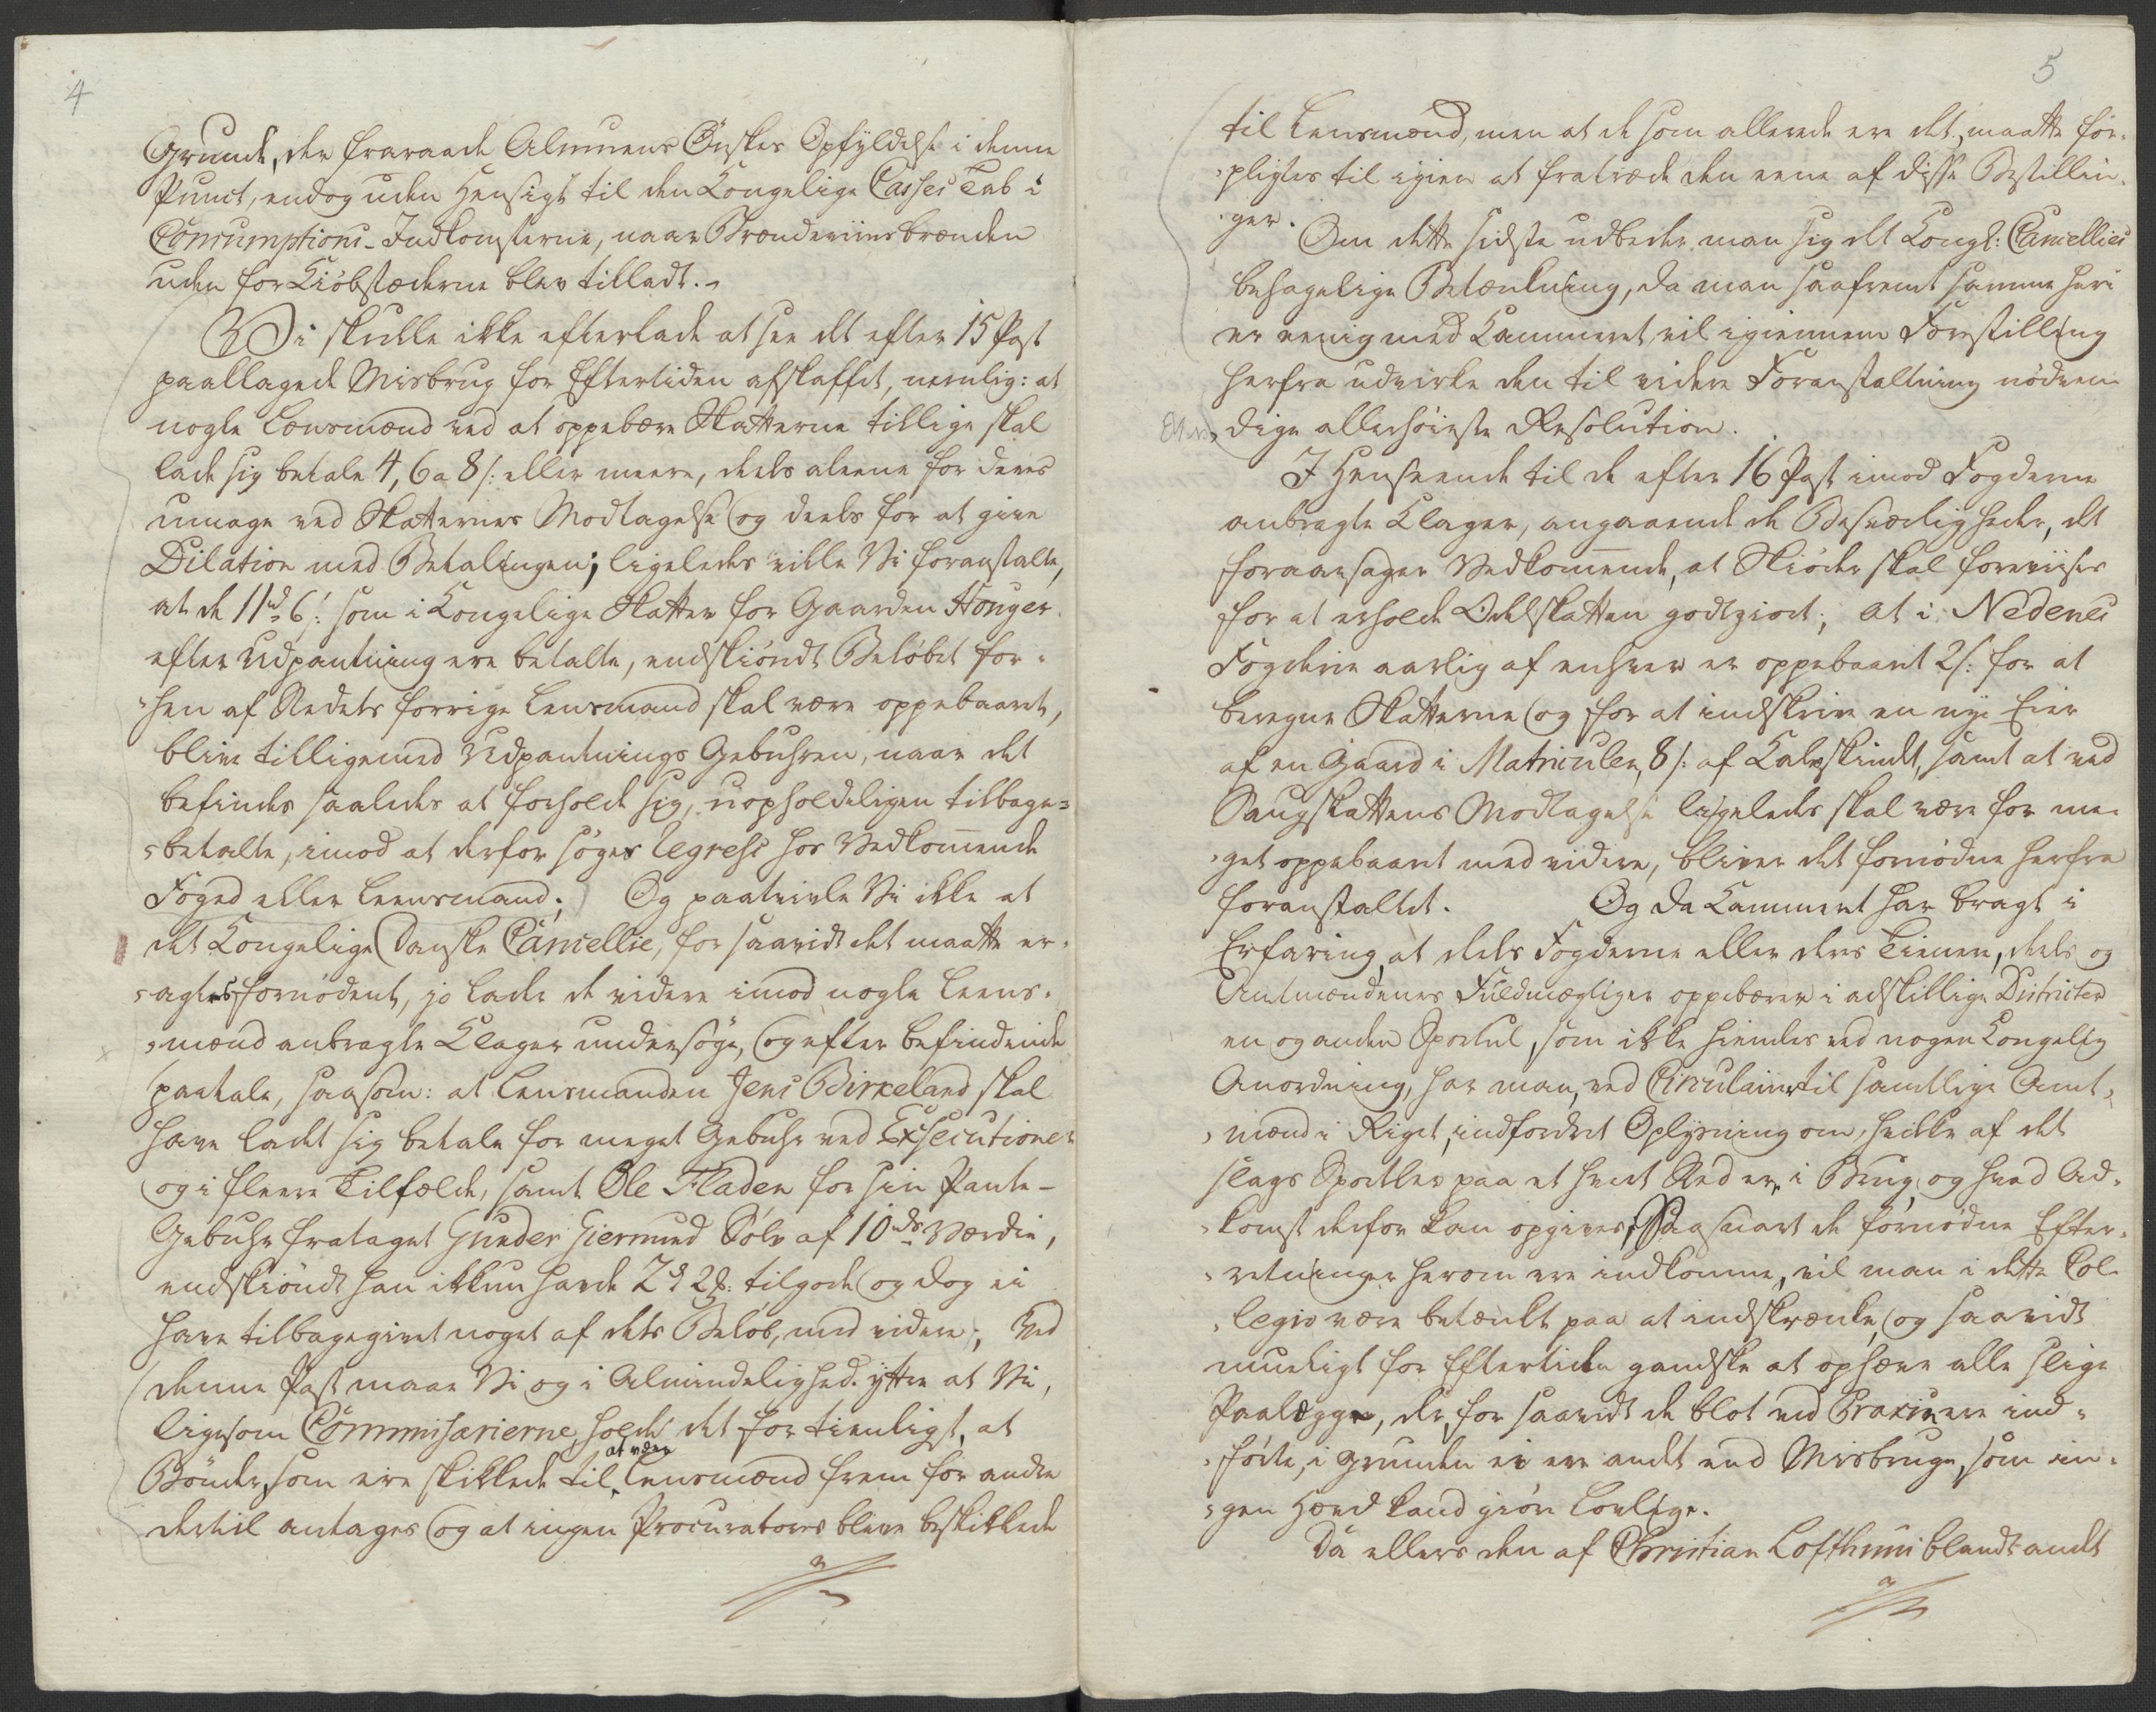 4
Grunde, der fraraade Almuens Ønskes Opfyldelse i denne
Punct, endog uden Hensigt til den Kongelige Casses Tab i
Consumptions-Indkomsterne, naar Brændeviinsbrænden
uden for Kiøbstæderne blev tilladt.
Vi skulle ikke efterlade at see det efter 15 Post
paaklagede Misbrug for Eftertiden afskaffet, nemlig: at
nogle Lensmænd ved at oppebære Skatterne tillige skal
lade sig betale 4, 6 a 8 s: eller meere, deels alene for deres
umage ved Skatternes Modtagelse og deels for at give
Dilation med Betalingen; ligeledes ville Vi foranstalte,
at de 11 rd 6 s: som i Kongelige Skatter for Gaarden Honger
efter Udpantning ere betalte, endskiøndt Beløbet for-
hen af Stedets forrige Lensmand skal være oppebaaret,
blive tilligemed Udpantnings Gebuhren, naar det
befindes saaledes at forholde sig, uopholdeligen tilbage-
betalte, imod at derfor søges Regress hos Vedkommende
Foged eller Leensmand; Og paatvivle Vi ikke at
det Kongelige Danske Cancellie, for saavidt det maatte er-
agtes fornødent, jo lader de videre imod nogle Leens-
mænd anbragte Klager undersøge, og efter befindende
paatale, saasom: at Lensmanden Jens Birkeland skal
have ladet sig betale for meget Gebuhr ved Exsecutioner
og i fleere Tilfælde, samt Ole Fladen for sin Pante-
Gebuhr frataget Gunder Giermund Sølv af 10 rdr Værdie,
endskiøndt han ikkun havde 2 d 2 s: tilgode og dog ei
have tilbagegivet noget af dets Beløb, med videre; Ved
denne Post maae Vi og i Almindelighed yttre at Vi,
ligesom Commissarierne, holde det for tienligt, at
Bønder, som ere skikkede til at være Lensmænd frem for andre
dertil antages og at ingen Procuratores bleve beskikkede
5
til Lensmænd, men at de som allerede ere det, maatte for-
pligtes til igien at fratræde den eene af disse Bestillin-
ger. Om dette sidste udbeder man sig det Kongl: Cancellies
behagelige Betænkning, da man saafremt samme heri
er eenig med Kammeret, vil igiennem Forestilling
herfra udvirke den til videre Foranstaltning nødven-
dige allerhøieste Resolution.
I Henseende til de efter 16 Post imod Fogderne
anbragte Klager, angaaende de Besværligheder, det
foraarsager Vedkommende, at Skiøder skal foreviises
for at erholde Odelskatten godtgiort; at i Nedenes
Fogderie aarlig af enhver er oppebaaret 2 s: for at
beregne Skatterne og for at indskrive en nye Eier
af en Gaard i Matriculen, 8 s: af Kalvskindt, samt at ved
Saugskattens Modtagelse ligeledes skal være for me-
get oppebaaret med videre, bliver det fornødne herfra
foranstaltet. Og da Kammeret har bragt i
Erfaring, at deels Fogderne eller deres Tienere, deels og
Amtmændenes Fuldmægtiger oppebærer i adskillige Districter
en og anden Sportul, som ikke hiemles ved nogen Kongelig
Anordning, har man, ved Circulaire til samtlige Amt-
mænd i Riget, indfordret Oplysning om, hvilke af det
slags Sportler paa et hvert Sted er i Brug, og hvad Ad-
komst derfor kan opgives; Saasnart de fornødne Efter-
retninger herom ere indkomne, vil man i dette Col-
legio være betænkt paa at indskrænke, og saavidt
mueligt for Eftertiden gandske at ophæve alle slige
Paalægge, der, for saavidt de blot ved Praxis ere ind-
førte, i Grunden ei ere andet end Misbruge, som in-
gen Hævd kand giøre lovlige.
Da ellers den af Christian Lofthuus blandt andet